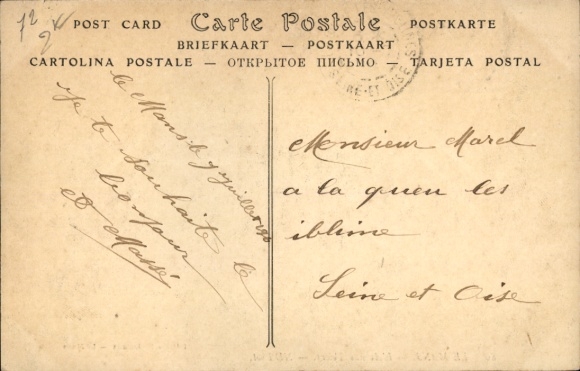 72
POST CARD Carte Postale POSTKARTE
BRIEFKAART — POSTKAART
CARTOLINA POSTALE — ОТКРЫТОЕ ПИСЬМО — TARJETA POSTAL
SEINE-ET-OISE
le Mans le 9 juillet
je te souhaite le
bonjour
et Massé
Monsieur Marcel
a la queu les
iblime
Seine et Oise